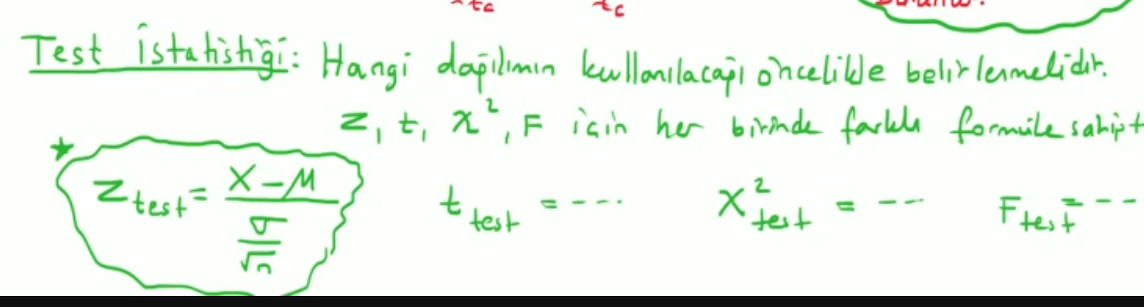 tc tc
Test İstatistiği: Hangi dağılımın kullanılacağı öncelikle belirlenmelidir.
z, t, χ², F için her birinde farklı formüle sahipt
* Z test = X - μ / σ / √n t test = ---- χ² test = --- F test = ---